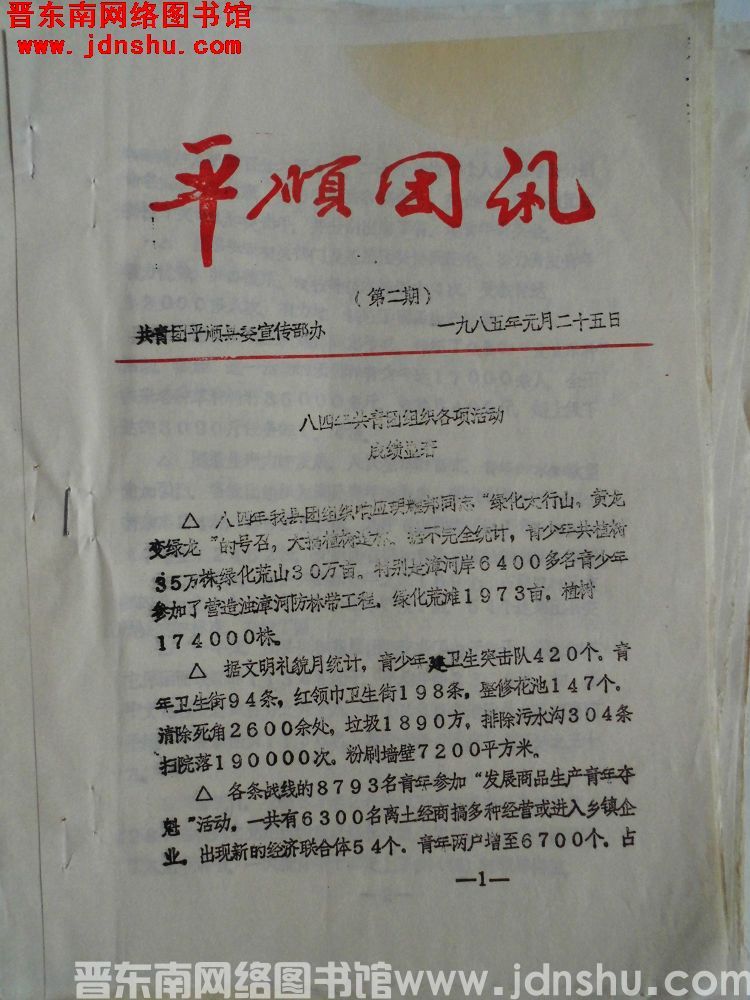 晋东南网络图书馆
www.jdnshu.com
平顺团讯
（第二期）
共青团平顺县委宣传部办 一九八五年元月二十五日
八四年共青团组织各项活动
成绩显著
△ 八四年我县团组织响应胡耀邦同志“绿化太行山，黄龙
变绿龙”的号召，大搞植树造林。据不完全统计，青少年共植树
35万株绿化荒山30万亩。特别是漳河岸6400多名青少年
参加了营造浊漳河防林带工程，绿化荒滩1973亩。植树
174000株。
△ 据文明礼貌月统计，青少年建卫生突击队420个。青
年卫生街94条，红领巾卫生街198条，整修花池147个。
清除死角2600余处，垃圾1890方，排除污水沟304条
扫院落190000次。粉刷墙壁7200平方米。
△ 各条战线的8793名青年参加“发展商品生产青年夺
魁”活动，一共有6300名离土经商搞多种经营或进入乡镇企
业，出现新的经济联合体54个。青年两户增至6700个。占
—1—
晋东南网络图书馆www.jdnshu.com